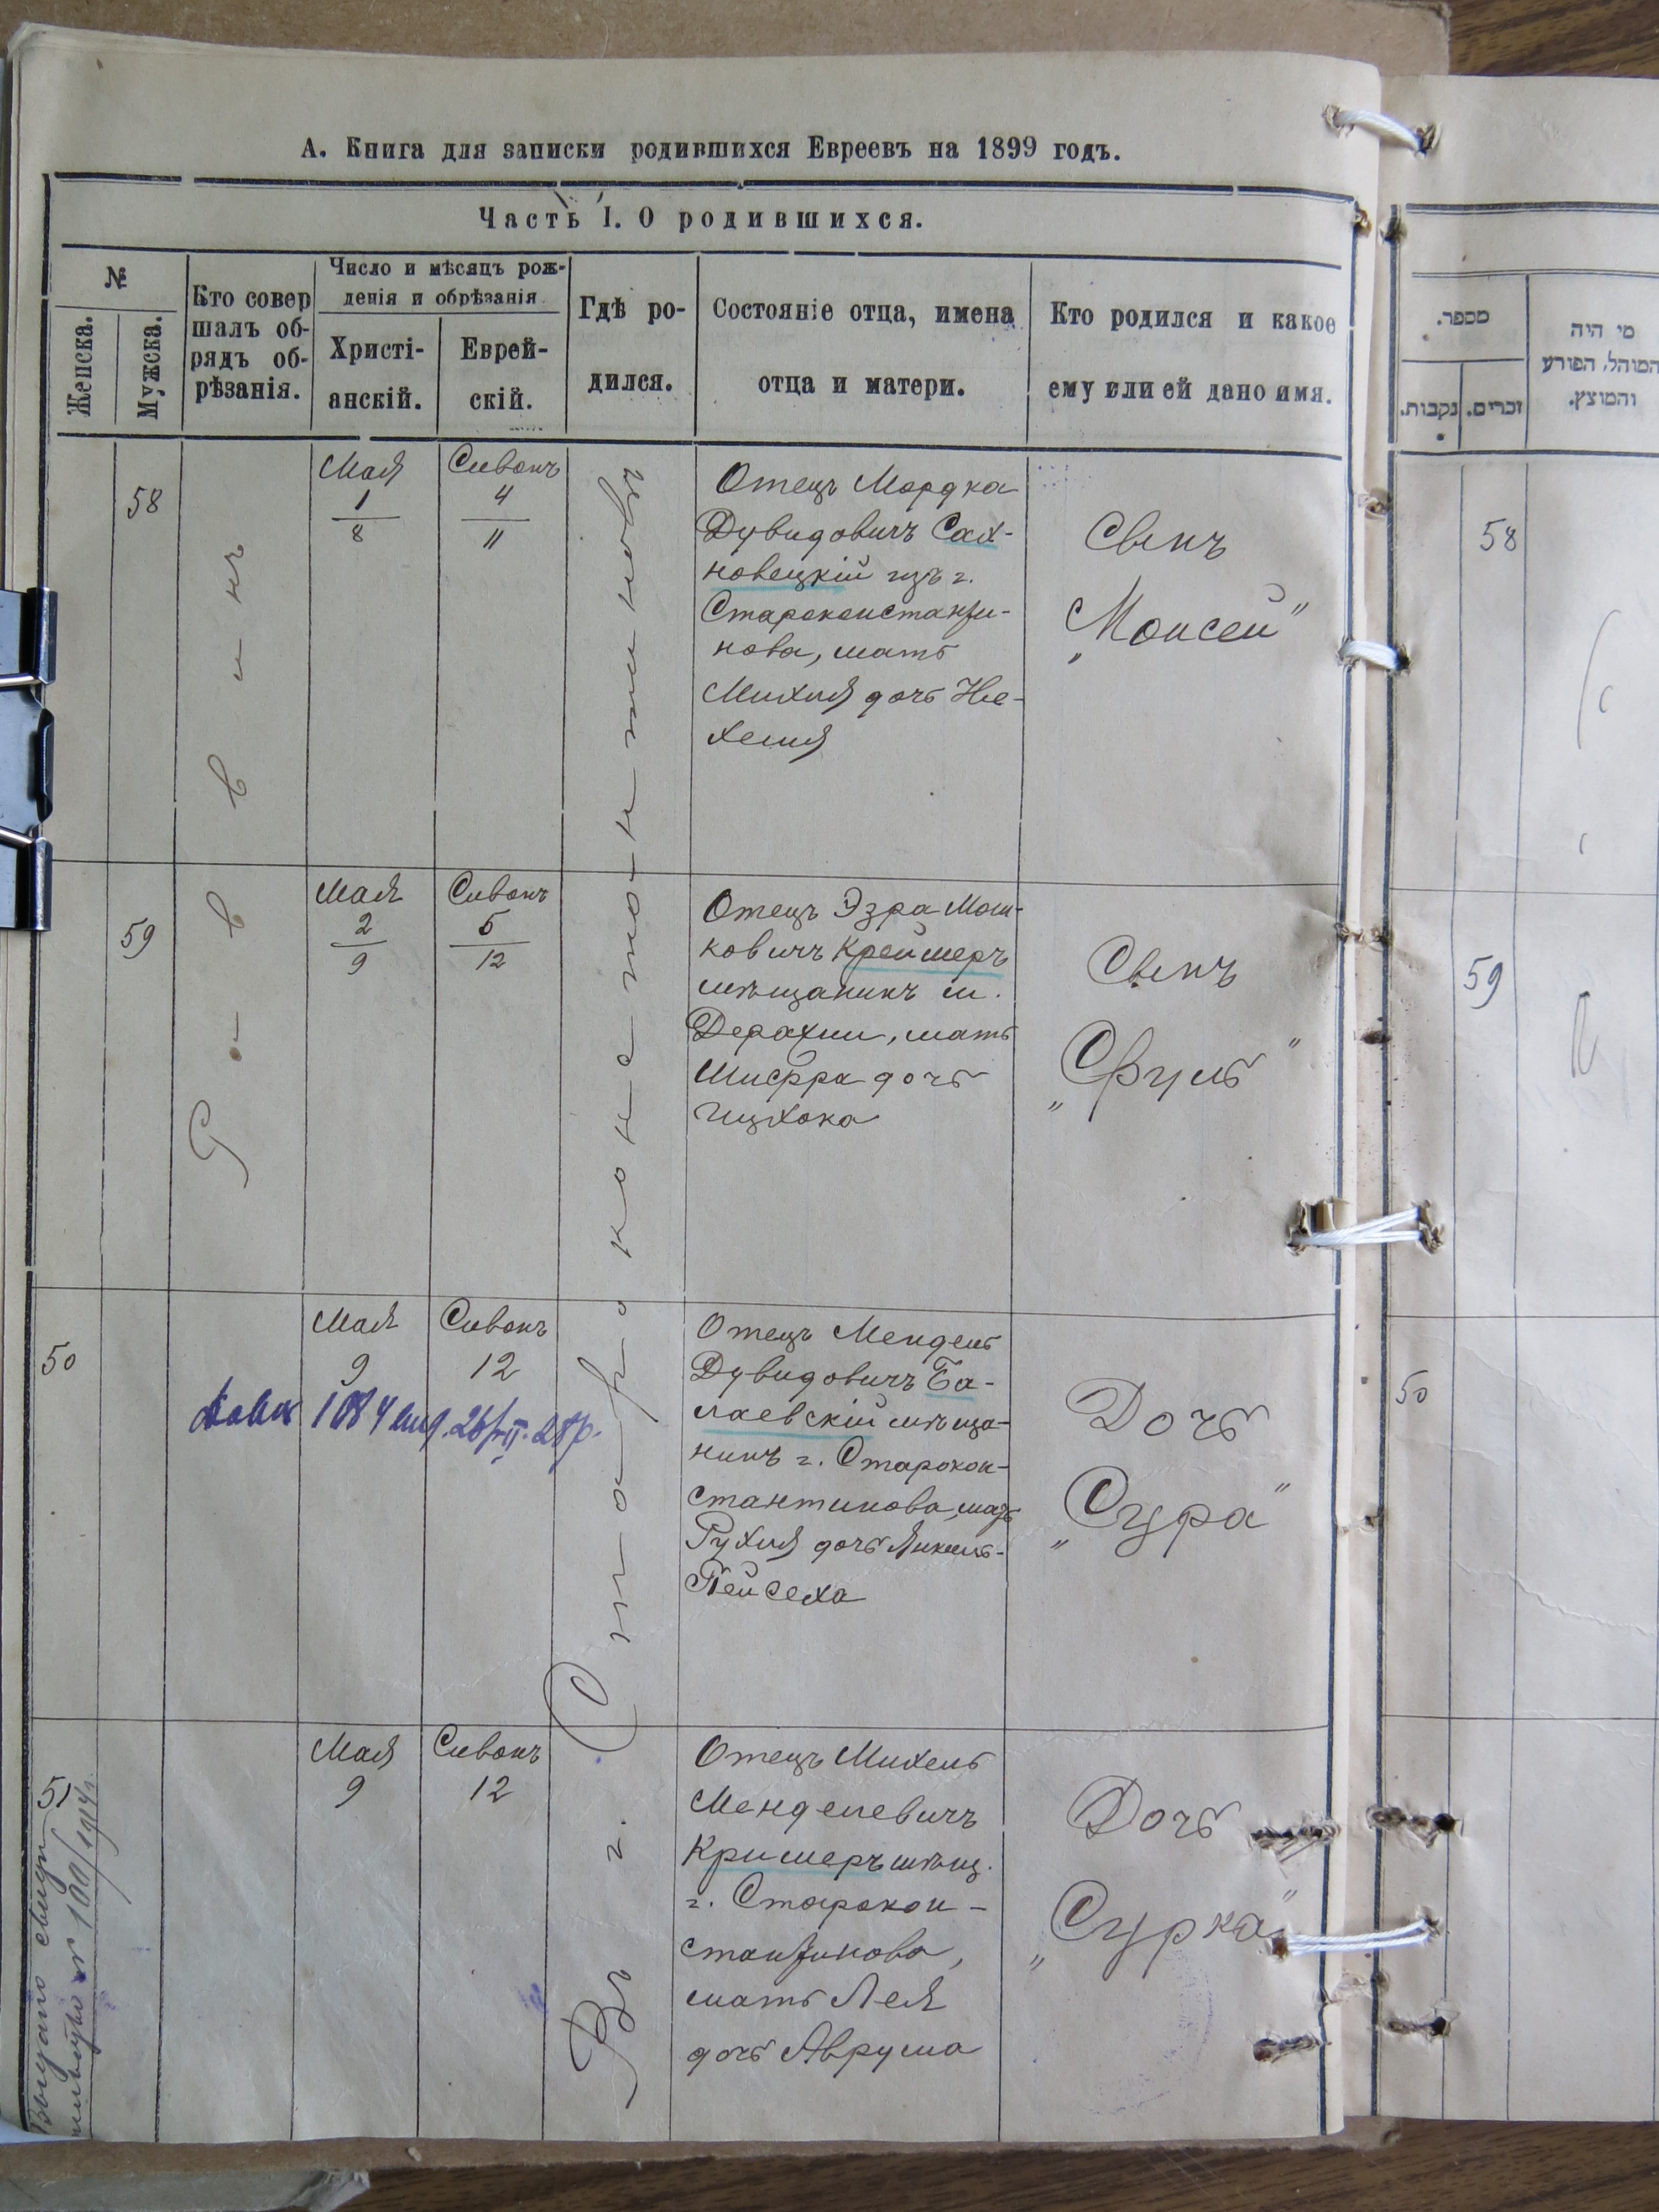 А. Книга для записки родившихся Евреевъ на 1899 годъ.
Часть I. О родившихся.
№
Женска.
Мужска.
Кто совер
шалъ об-
рядъ об-
рѣзанія.
Число и мѣсяцъ рож-
денія и обрѣзанія.
Христі-
анскій.
Еврей-
скій.
Гдѣ ро-
дился.
Состояніе отца, имена
отца и матери.
Кто родился и какое
ему или ей дано имя.
Раввинъ
Въ г. Староконстантиновѣ
58
Мая
1
8
Сиванъ
4
11
Отецъ Мордка
Дувидовичъ Сах-
новецкій изъ г.
Староконстанти-
нова, мать
Михля дочь Не-
хемія
Сынъ
„Моисей"
59
Мая
2
9
Сиванъ
5
12
Отецъ Эзра Мош-
ковичъ Креймеръ
мѣщанинъ м.
Деражни, мать
дочь
Ицхока
Сынъ
„Сруль"
50
Мая
9
Сиванъ
12
Отецъ Мендель
Дувидовичъ Ба-
лаевскій мѣща-
нинъ г. Старокон-
стантинова, мать
Рухля дочь Янкель-
Пейсеха
Дочь
„Сура"
51
Мая
9
Сиванъ
12
Отецъ Михель
Менделевичъ
Кримеръ мѣщ.
г. Старокон-
стантинова,
мать Лея
дочь Аврума
Дочь
„Сурка"
מספר.
נקבות.
זכרים.
מי היה
המוהל, הפורע
והמוצץ.
58
59
50